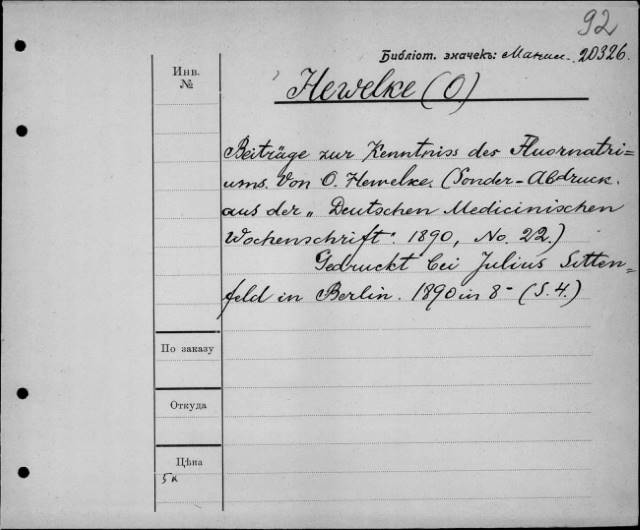 92
Библіот. значекъ: 20326.
Инв.
№
Hewelke (O.)
Beiträge zur Kenntniss des Fluornatri=
ums. Von O. Hewelke. (Sonder-Abdruck.
aus der „Deutschen Medicinischen
Wochenschrift“. 1890, No. 22.)
Gedruckt bei Julius Sitten=
feld in Berlin. 1890 in 8- (S. 4.)
По заказу
Откуда
Цѣна
5к